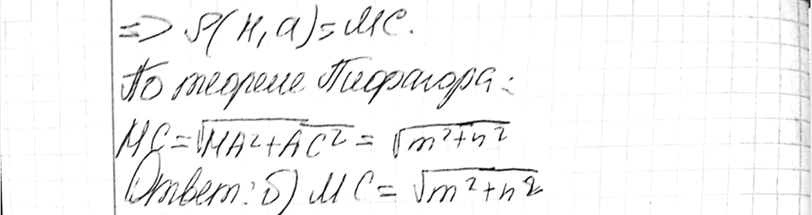 => ρ(M, a) = MC.
По теореме Пифагора:
MC = √(MA² + AC²) = √(m² + n²)
Ответ: б) MC = √(m² + n²)